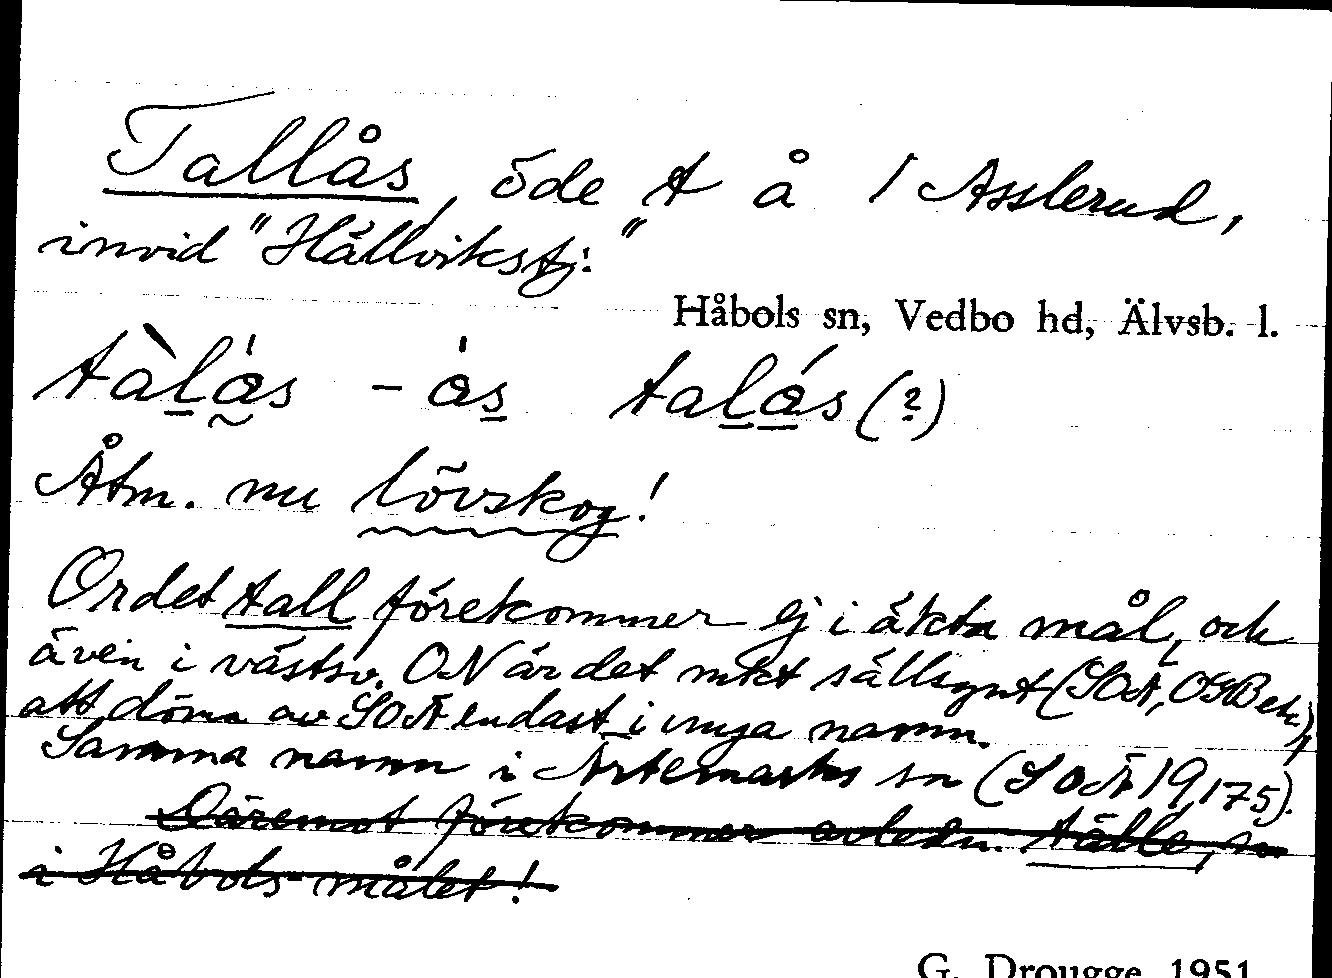 Tallås, öde t å 1 Asslerud,
invid "Hällvikstj."
Håbols sn, Vedbo hd, Älvsb. l.
tàlås - ås talås (?)
Åtm. nu lövskog!
Ordet tall förekommer ej i äkta mål, och
även i västsv. ON är det mkt sällsynt (SOÄ, OGB etc.),
att döma av SOÄ endast i unga namn.
Samma namn i Ärtemarks sn (SOÄ 19, 175).
Däremot förekommer avledn. tälle, n
i Håbols-målet!
G. Drougge 1951